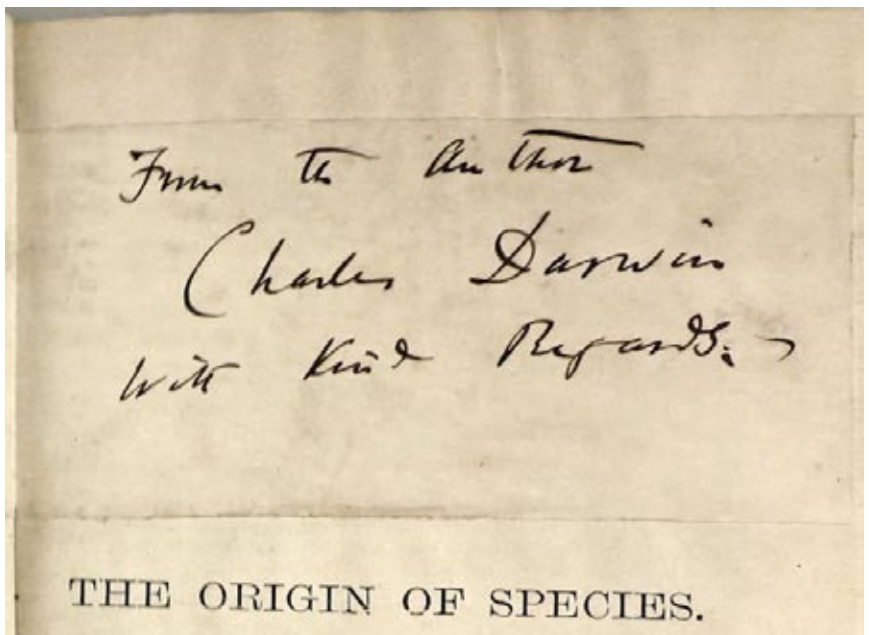 From the Author
Charles Darwin
With Kind Regards.
THE ORIGIN OF SPECIES.